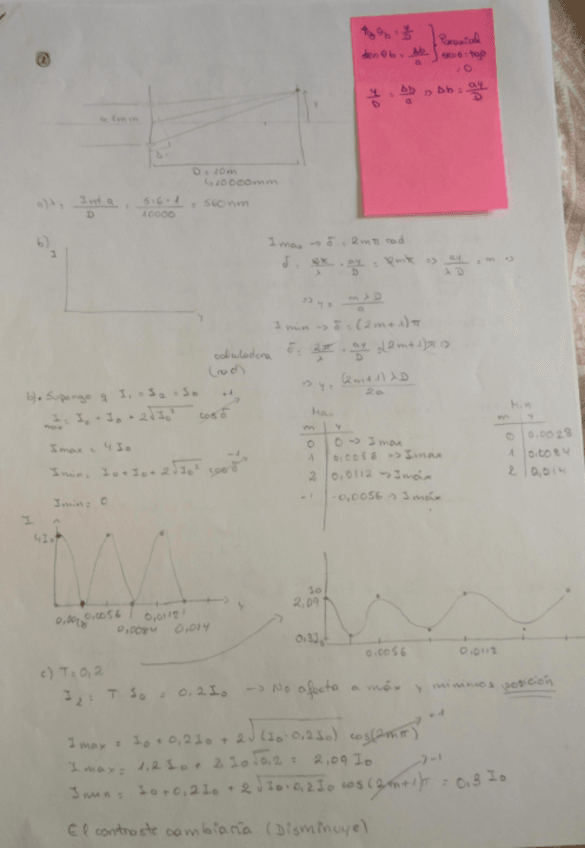 tg θb = y/D
sen θb = Δb/a
Paraxial
senθ≈tagθ
y/D = Δb/a ⇒ Δb = ay/D
a 1mm
Δ
y
D = 10m
10000mm
a) λ = = 5.6·1/10000 = 560nm
b)
I
y
I max → δ = 2mπ rad
δ = 2π/λ · ay/D = 2mπ ⇒ ay/λD = m ⇒
⇒ y = mλD/a
I min → δ = (2m+1)π
calculadora
(rad)
δ = 2π/λ · ay/D = (2m+1)π ⇒
⇒ y = (2m+1)λD/2a
b) • Supongo q I1 = I2 = I0
+1
I max = I0 + I0 + 2√I0² cos δ
I max = 4I0
-1
I min = I0 + I0 + 2√I0² cos δ
I min = 0
Max
m y
0 0 → I max
1 0,0056 → I max
2 0,0112 → I máx
-1 -0,0056 → I máx
Min
m y
0 0,0028
1 0,0084
2 0,014
I
4I0
y
0,0028 0,0056 0,0084 0,0112 0,014
I0
2,09
0,3I0
0,0056 0,0112
c) T = 0,2
I2 = T I0 = 0,2I0 → No afecta a máx y mínimos posición
I max = I0 + 0,2I0 + 2√(I0·0,2I0) cos(2mπ) +1
I max = 1,2 I0 + 2 I0√0,2 = 2,09 I0
I min = I0 + 0,2I0 + 2√I0·0,2I0 cos(2m+1)π -1 = 0,3 I0
El contraste cambiaría (Disminuye)